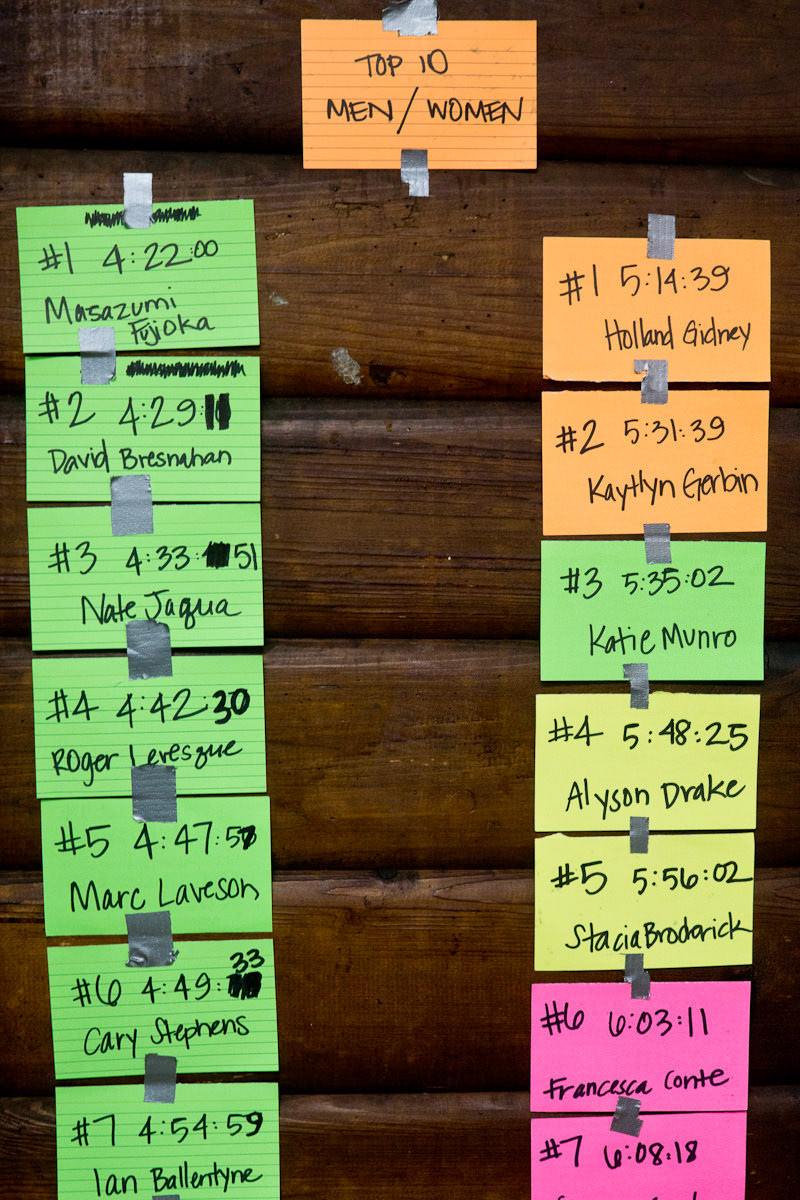 TOP 10
MEN/WOMEN
#1 4:22:00
Masazumi
Fujioka
#2 4:29:
David Bresnahan
#3 4:33: 51
Nate Jaqua
#4 4:42:30
Roger Levesque
#5 4:47:57
Marc Laveson
33
#6 4:49:
Cary Stephens
#7 4:54:59
Ian Ballentyne
#1 5:14:39
Holland Gidney
#2 5:31:39
Kaytlyn Gerbin
#3 5:35:02
Katie Munro
#4 5:48:25
Alyson Drake
#5 5:56:02
Stacia Broderick
#6 6:03:11
Francesca Conte
#7 6:08:18